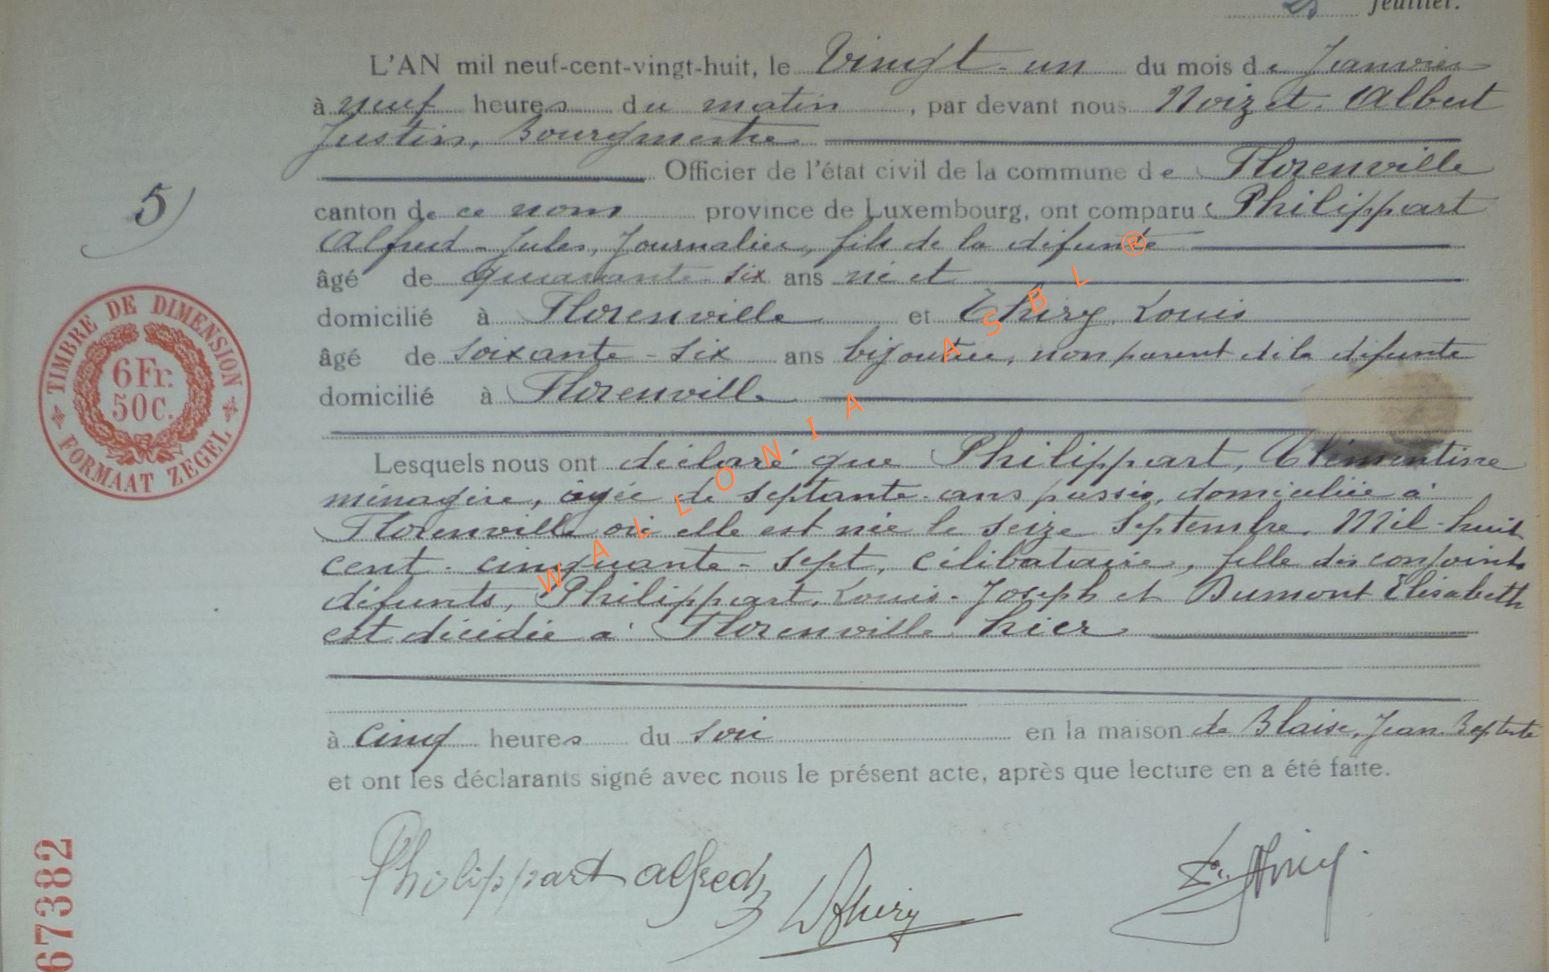 feuillet.
L'AN mil neuf-cent-vingt-huit, le Vingt-un du mois de Janvier
à neuf heures du matin, par devant nous Noizet Albert
Justin, Bourgmestre
Officier de l'état civil de la commune de Florenville
canton de ce nom province de Luxembourg, ont comparu Philippart
Alfred-Jules, Journalier, fils de la défunte
âgé de quarante-six ans né et
domicilié à Florenville et Thiry Louis
âgé de soixante-six ans bijoutier, non parent de la défunte
domicilié à Florenville
Lesquels nous ont déclaré que Philippart, Clémentine
ménagère, âgée de septante ans passés, domiciliée à
Florenville où elle est née le seize Septembre Mil-huit
cent-cinquante-sept, célibataire, fille des conjoints
défunts, Philippart, Louis-Joseph et Dumont Elisabeth
est décédée à Florenville hier
à cinq heures du soir en la maison de Blaise, Jean Baptiste
et ont les déclarants signé avec nous le présent acte, après que lecture en a été faite.
Philippart alfred
L Thiry
5
TIMBRE DE DIMENSION
6Fr.
50C.
FORMAAT ZEGEL
67382
WALLONIA ASBL ®